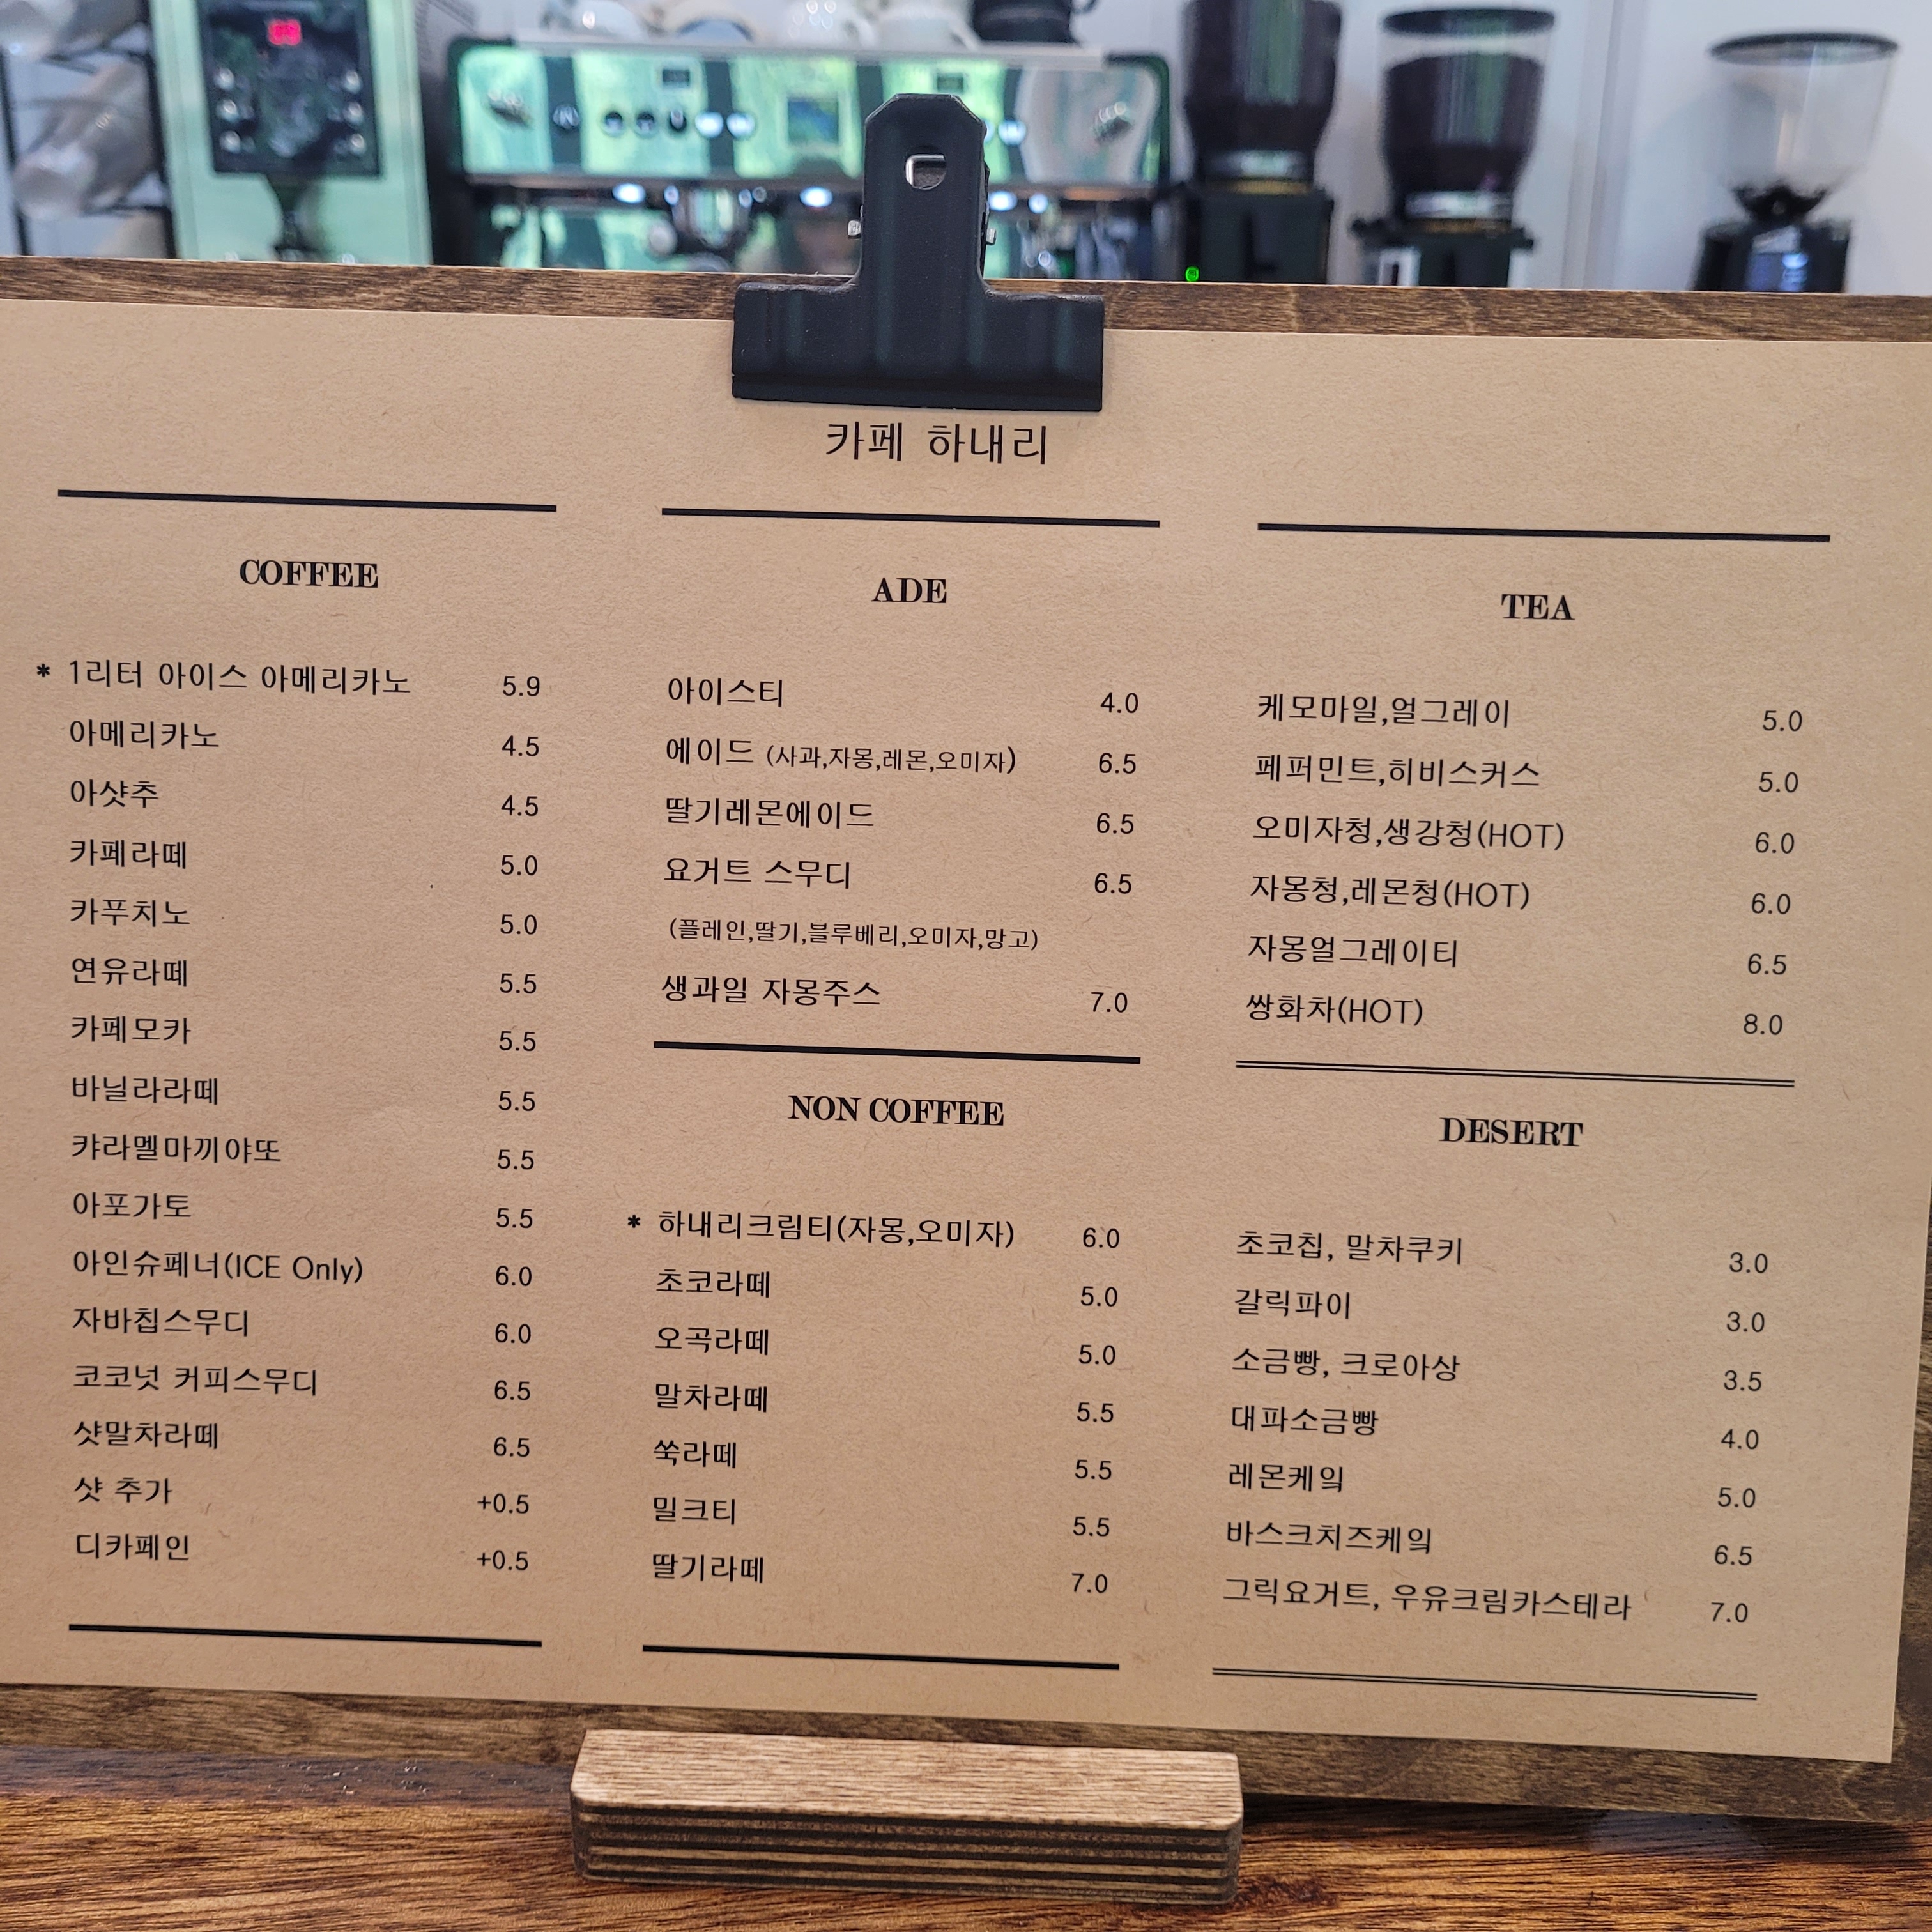 카페 하내리
COFFEE
* 1리터 아이스 아메리카노 5.9
아메리카노 4.5
아샷추 4.5
카페라떼 5.0
카푸치노 5.0
연유라떼 5.5
카페모카 5.5
바닐라라떼 5.5
캬라멜마끼야또 5.5
아포가토 5.5
아인슈페너(ICE Only) 6.0
자바칩스무디 6.0
코코넛 커피스무디 6.5
샷말차라떼 6.5
샷 추가 +0.5
디카페인 +0.5
ADE
아이스티 4.0
에이드 (사과,자몽,레몬,오미자) 6.5
딸기레몬에이드 6.5
요거트 스무디 6.5
(플레인,딸기,블루베리,오미자,망고)
생과일 자몽주스 7.0
NON COFFEE
* 하내리크림티(자몽,오미자) 6.0
초코라떼 5.0
오곡라떼 5.0
말차라떼 5.5
쑥라떼 5.5
밀크티 5.5
딸기라떼 7.0
TEA
케모마일,얼그레이 5.0
페퍼민트,히비스커스 5.0
오미자청,생강청(HOT) 6.0
자몽청,레몬청(HOT) 6.0
자몽얼그레이티 6.5
쌍화차(HOT) 8.0
DESERT
초코칩, 말차쿠키 3.0
갈릭파이 3.0
소금빵, 크로아상 3.5
대파소금빵 4.0
레몬케잌 5.0
바스크치즈케잌 6.5
그릭요거트, 우유크림카스테라 7.0